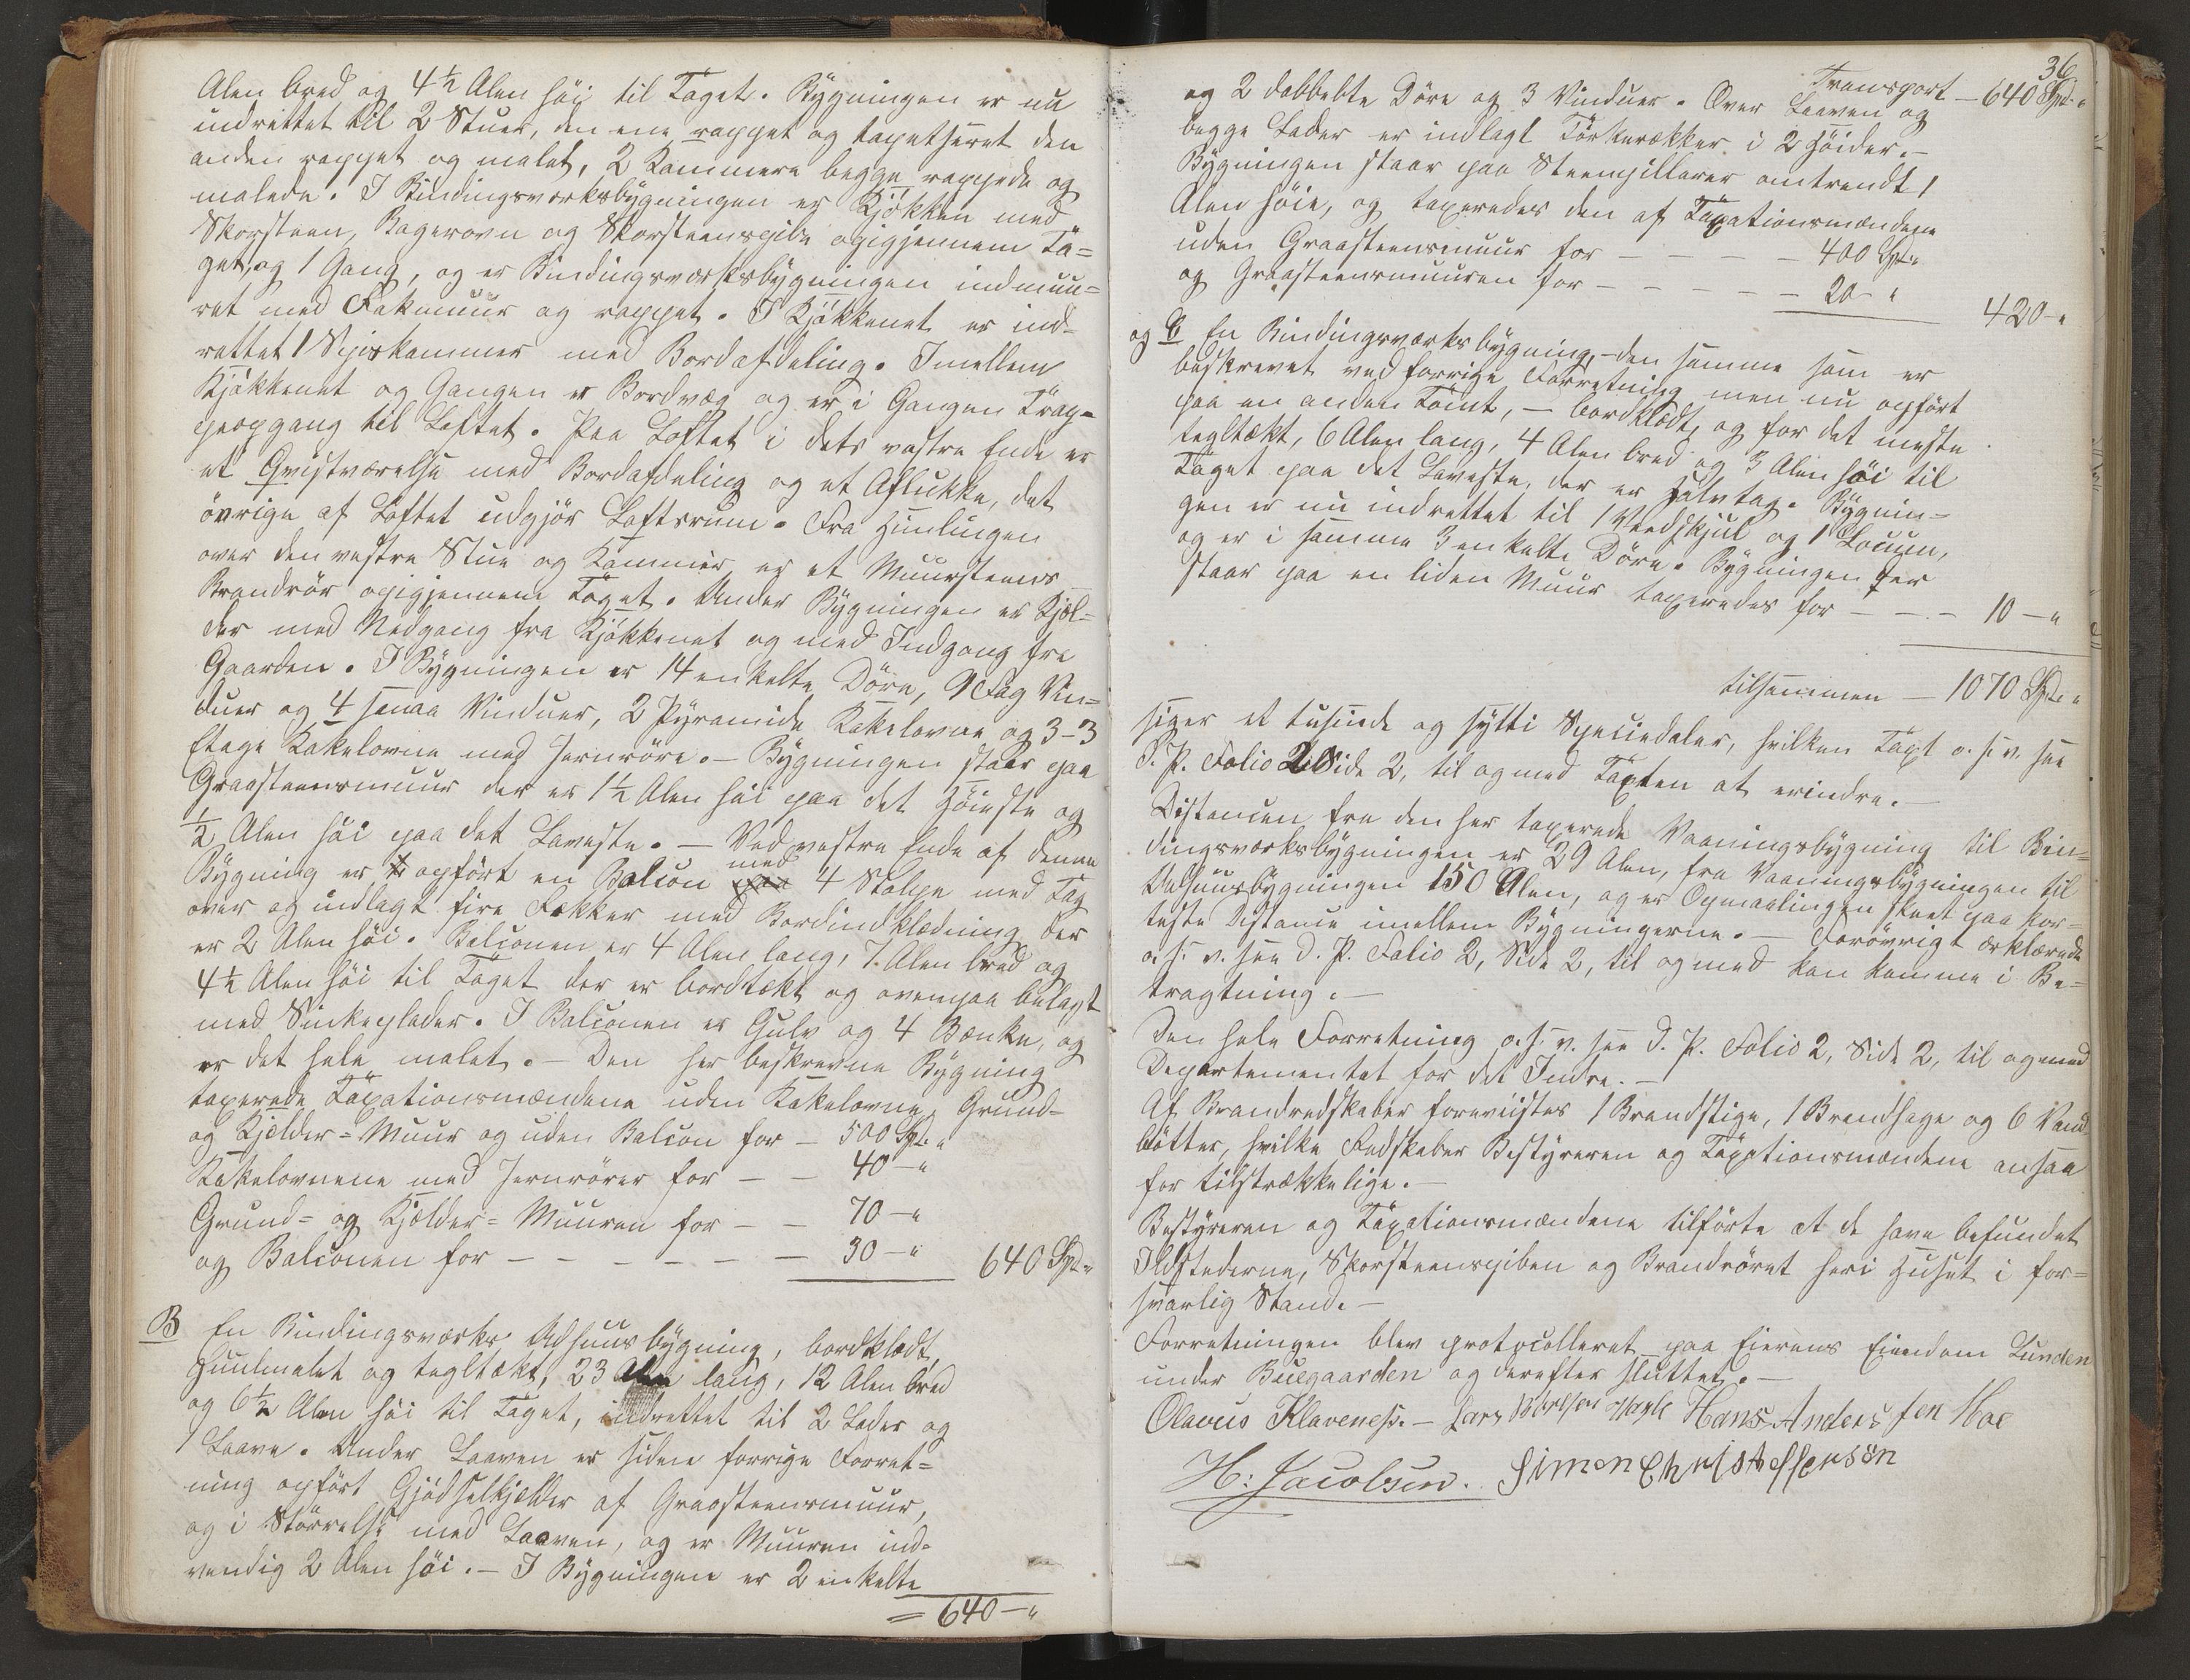 Alen bred og 4½ Alen höi til Taget. Bygningen er nu
indrettet til 2 Stuer, den ene rappet og tapetseret den
anden rappet og malet, 2 Kammere begge rappede og
malede. I Bindingsværksbygningen er Kjökken med
Skorsteen, Bagerovn og Skorsteenspibe opigjennem Ta=
get, og 1 Gang, og er Bindingsværksbygningen indmuu=
ret med Fakmuur og rappet. I Kjökkenet er ind=
rettet 1 Spiskammer med Bordafdeling. Imellem
Kjökkenet og Gangen er Bordvæg og er i Gangen Trap=
peopgang til Loftet. Paa Loftet i dets vestre Ende er
et Qvistværelse med Bordafdeling og et Aflukke, det
övrige af Loftet udgjör Loftsrum. Fra Himlingen
over den vestre Stue og Kammer er et Muursteens
Brandrör opigjennem Taget. Under Bygningen er Kjæl=
der med Nedgang fra Kjökkenet og med Indgang fra
Gaarden. I Bygningen er 14 enkelte Döre, 9 Fag Vin=
duer og 4 smaa Vinduer, 2 Pyramide Kakelovne og 3-3
Etage Kakelovne med Jernröre. – Bygningen staar paa
Graasteensmuur der er 1½ Alen höi paa det Höieste og
½ Alen höi paa det Laveste. – Ved vestre Ende af denne
Bygning er opfört en Balcon med 4 Stolpe med Tag
over og indlagt fire Fakker med Bordindklædning der
er 2 Alen höi. Balconen er 4 Alen lang, 7 Alen bred og
4½ Alen höi til Taget der er bordtækt og ovenpaa belagt
med Sinkeplader. I Balconen er Gulv og 4 Bænke, og
er det hele malet. – Den her beskrevne Bygning
taxerede Taxationsmændene uden Kakelovne, Grund-
og Kjelder=Muur og uden Balcon for – 500 Spd. "
Kakelovnene med Jernrörer for – – 40 – "
Grund= og Kjelder=Muuren for – – 70 – "
og Balconen for – – – – – – 30 – " 640 Spd. "
B En Bindingsværks Udhuusbygning, bordklædt,
Huulmalet og tegltækt, 23 Alen lang, 12 Alen bred
og 6½ Alen höi til Taget, indrettet til 2 Lader og
1 Laave. Under Laaven er siden forrige Forret=
ning opfört Gjödselkjelder af Graasteensmuur,
og i Störrelse med Laaven, og er Muuren ind=
vendig 2 Alen höi. – I Bygningen er 2 enkelte
= 640 – "
36
Transport – 640 Spd. "
og 2 dobbelte Döre og 3 Vinduer. Over Laaven og
begge Lader er indlagt Törkerækker i 2 Höider. –
Bygningen staar paa Steenpillarer omtrendt 1
Alen höie, og taxeredes den af Taxationsmændene
uden Graasteensmuur for – – – – 400 Spd. "
og Graasteensmuuren for – – – – – 20 – " 420 – "
og C En Bindingsværksbygning, – den samme som er
beskrevet ved forrige Forretning men nu opfört
paa en anden Tomt, – bordklædt, og for det meste
tegltækt, 6 Alen lang, 4 Alen bred og 3 Alen höi til
Taget paa det Laveste, der er Halvtag. Bygnin=
gen er nu indrettet til 1 Vedskjul og 1 Locum,
og er i samme 3 enkelte Döre. Bygningen der
staar paa en liden Muur taxeredes for – – – 10 – "
tilsammen – 1070 Spd. "
siger et tusinde og sytti Speciedaler, hvilken Taxt o. s. v. see
d. P. Folio 2 Side 2, til og med Taxten at erindre. –
Distancen fra den her taxerede Vaaningsbygning til Bin=
dingsværksbygningen er 29 Alen, fra Vaaningsbygningen til
Udhuusbygningen 150 Alen, og er Opmaalingen skeet paa kor=
teste Distance imellem Bygningerne. – Forövrigt erklærede
o. s. v. see d. P. Folio 2, Side 2, til og med kan komme i Be=
tragtning. –
Den hele Forretning o. s. v. see d. P. Folio 2, Side 2, til og med
Departementet for det Indre. –
Af Brandredskaber foreviistes 1 Brandstige, 1 Brandhage og 6 Vand
bötter, hvilke Redskaber Bestyreren og Taxationsmændene ansaa
for tilstrækkelige. –
Bestyreren og Taxationsmændene tilförte at de have befundet
Ildstederne, Skorsteenspiben og Brandröret her i Huset i for=
svarlig Stand. –
Forretningen blev protocolleret paa Eierens Eiendom Lunden
under Buegaarden og derefter sluttet. –
Olavus Klaveness. – Lars Hans Andersen Hoe
H: Jacobsen. Simon Christoffersen